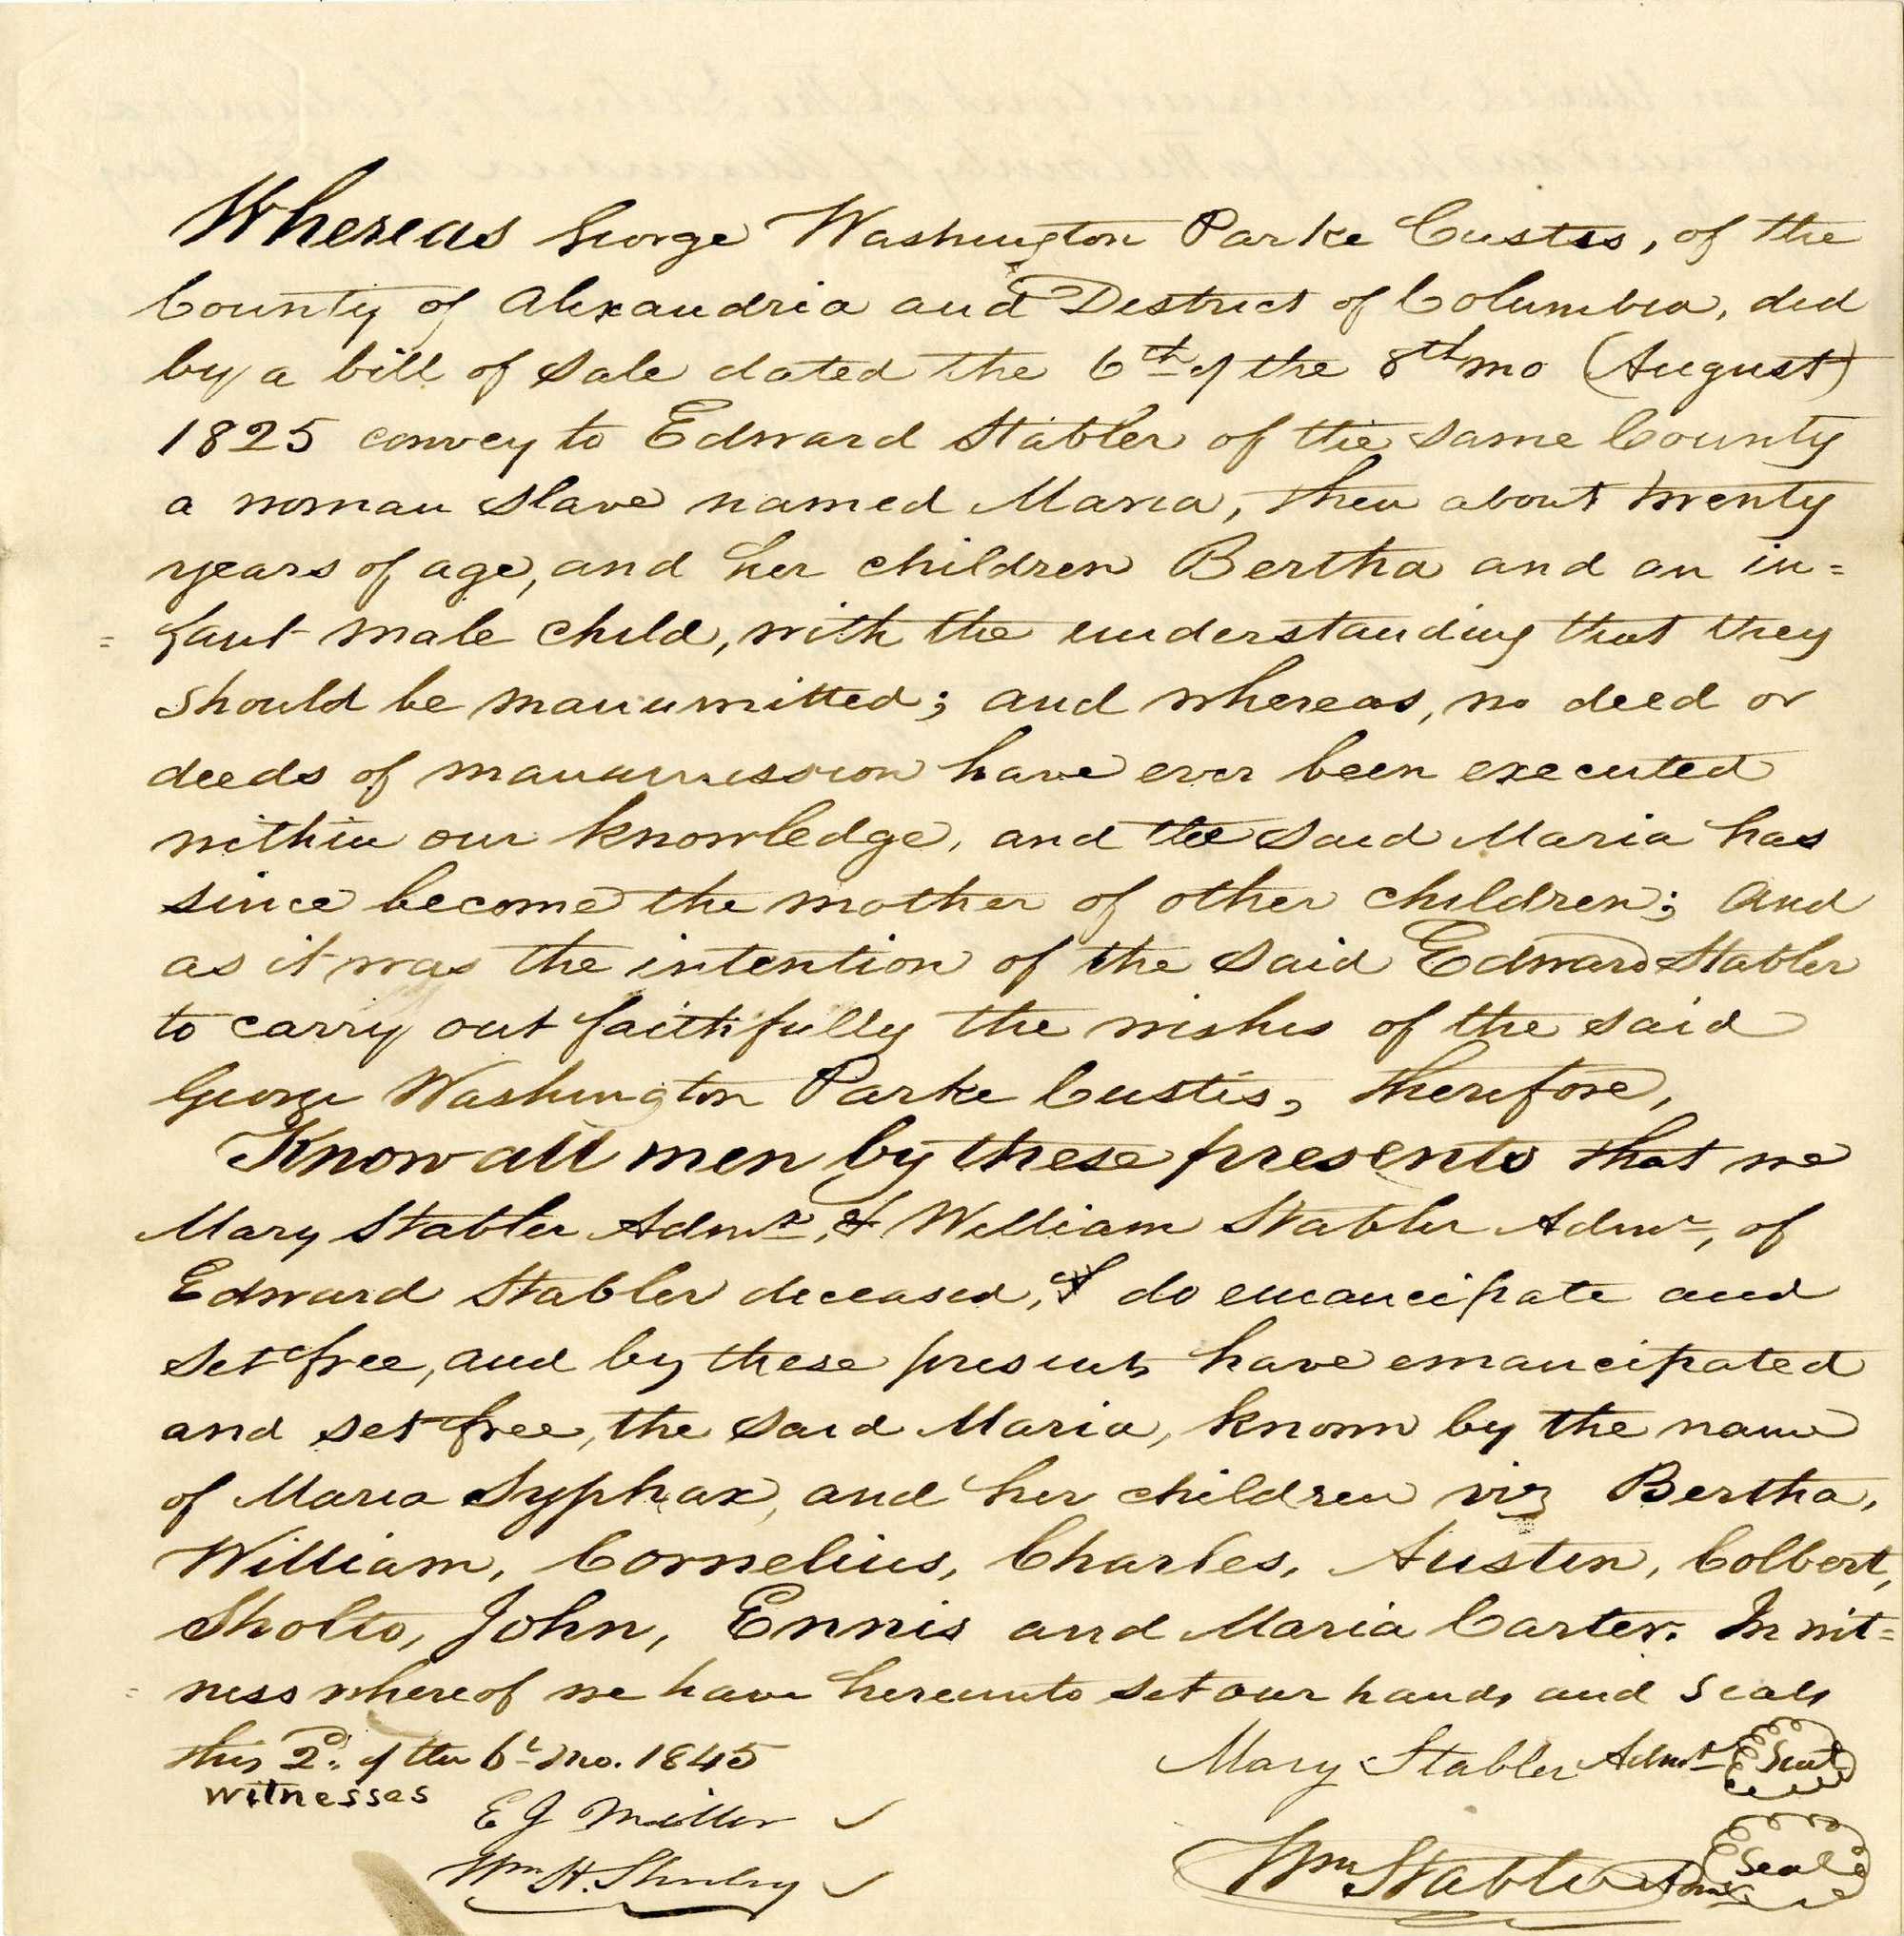 Whereas George Washington Parke Custis, of the
County of Alexandria and District of Columbia, did
by a bill of sale dated the 6th of the 8th mo (August)
1825 convey to Edward Stabler of the same County
a woman slave named Maria, then about twenty
years of age, and her children Bertha and an in=
=fant male child, with the understanding that they
should be manumitted; and whereas, no deed or
deeds of manumission have ever been executed
within our knowledge, and the said Maria has
since become the mother of other children; and
as it was the intention of the said Edward Stabler
to carry out faithfully the wishes of the said
George Washington Parke Custis, therefore,
Know all men by these presents that we
Mary Stabler Admx, & William Stabler Admr, of
Edward Stabler deceased, do emancipate and
set free, and by these presents have emancipated
and set free, the said Maria, known by the name
of Maria Syphax, and her children viz Bertha,
William, Cornelius, Charles, Austin, Colbert,
Sholto, John, Ennis and Maria Carter. In wit=
=ness whereof we have hereunto set our hands and seals
this 2d. of the 6t mo. 1845
Mary Stabler Admx Seal
witnesses
E J Miller
Wm Stabler Admr Seal
Wm H.